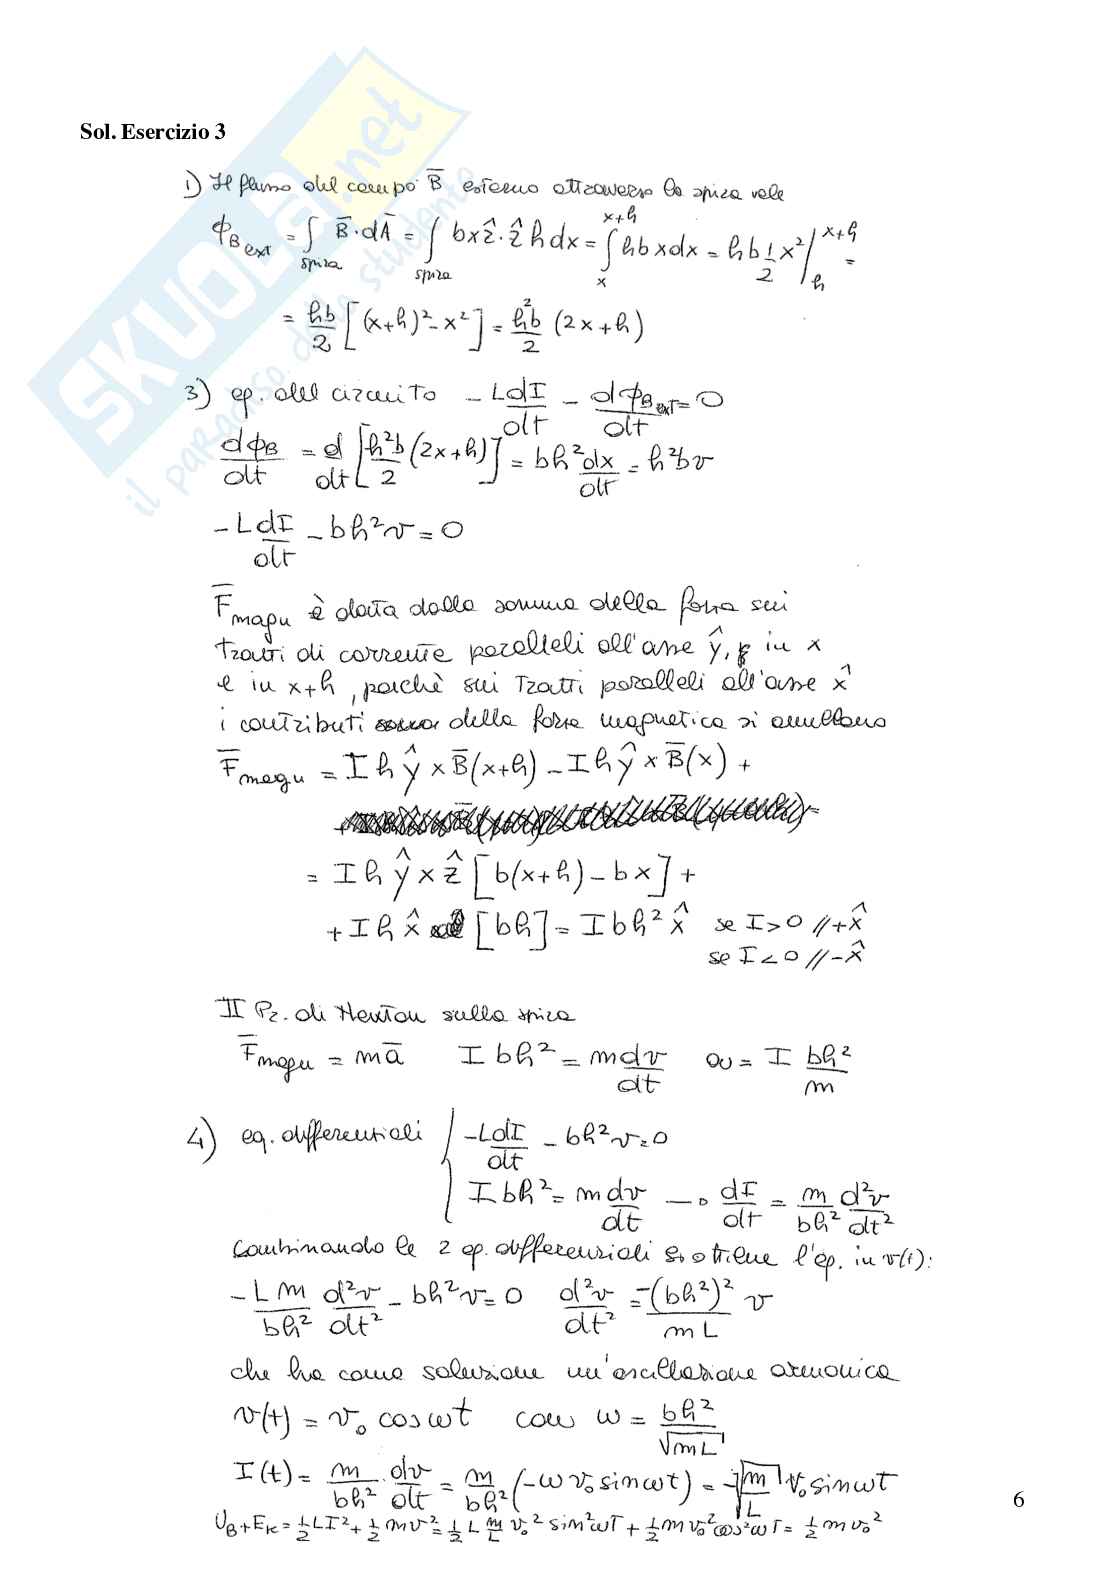 SKUOLA.net
il paradiso dello studente
Sol. Esercizio 3
1) Il flusso del campo B̅ esterno attraverso la spira vale
ϕ_B ext = ∫_spira B̅·dA̅ = ∫_spira bx ẑ·ẑ h dx = ∫_x^{x+h} hb x dx = hb 1/2 x² |_h^{x+h} =
= hb/2 [(x+h)² - x²] = h²b/2 (2x+h)
3) eq. del circuito - L dI/dt - dϕ_B ext/dt = 0
dϕ_B/dt = d/dt [h²b/2 (2x+h)] = bh² dx/dt = h²bv
- L dI/dt - bh²v = 0
F̅magn è data dalla somma della forza sui
tratti di corrente paralleli all'asse ŷ, in x
e in x+h, poichè sui tratti paralleli all'asse x̂
i contributi della forza magnetica si annullano
F̅magn = I h ŷ × B̅(x+h) - I h ŷ × B̅(x) +
= I h ŷ × ẑ [b(x+h) - bx] +
+ I h x̂ [bh] = I bh² x̂ se I>0 // +x̂
se I<0 // -x̂
II Pr. di Newton sulla spira
F̅magn = m a̅ I bh² = m dv/dt a = I bh²/m
4) eq. differenziali { - L dI/dt - bh²v = 0
I bh² = m dv/dt → dI/dt = m/bh² d²v/dt²
Combinando le 2 eq. differenziali si ottiene l'eq. in v(t):
- L m/bh² d²v/dt² - bh²v = 0 d²v/dt² = -(bh²)²/mL v
che ha come soluzione un'oscillazione armonica
v(t) = v₀ cos ωt con ω = bh²/√mL
I(t) = m/bh² · dv/dt = m/bh² (-ω v₀ sin ωt) = -√m/L v₀ sin ωt
U_B + E_K = 1/2 LI² + 1/2 mv² = 1/2 L m/L v₀² sin² ωt + 1/2 m v₀² cos² ωt = 1/2 m v₀²
6